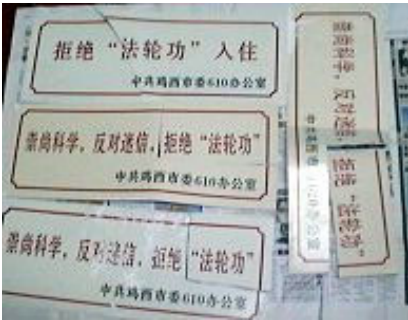 拒绝“法轮功”入住
中共鸡西市委610办公室
崇尚科学，反对迷信，拒绝“法轮功”
中共鸡西市委610办公室
崇尚科学，反对迷信，拒绝“法轮功”
中共鸡西市委610办公室
崇尚科学，反对迷信，拒绝“法轮功”
中共鸡西市委610办公室